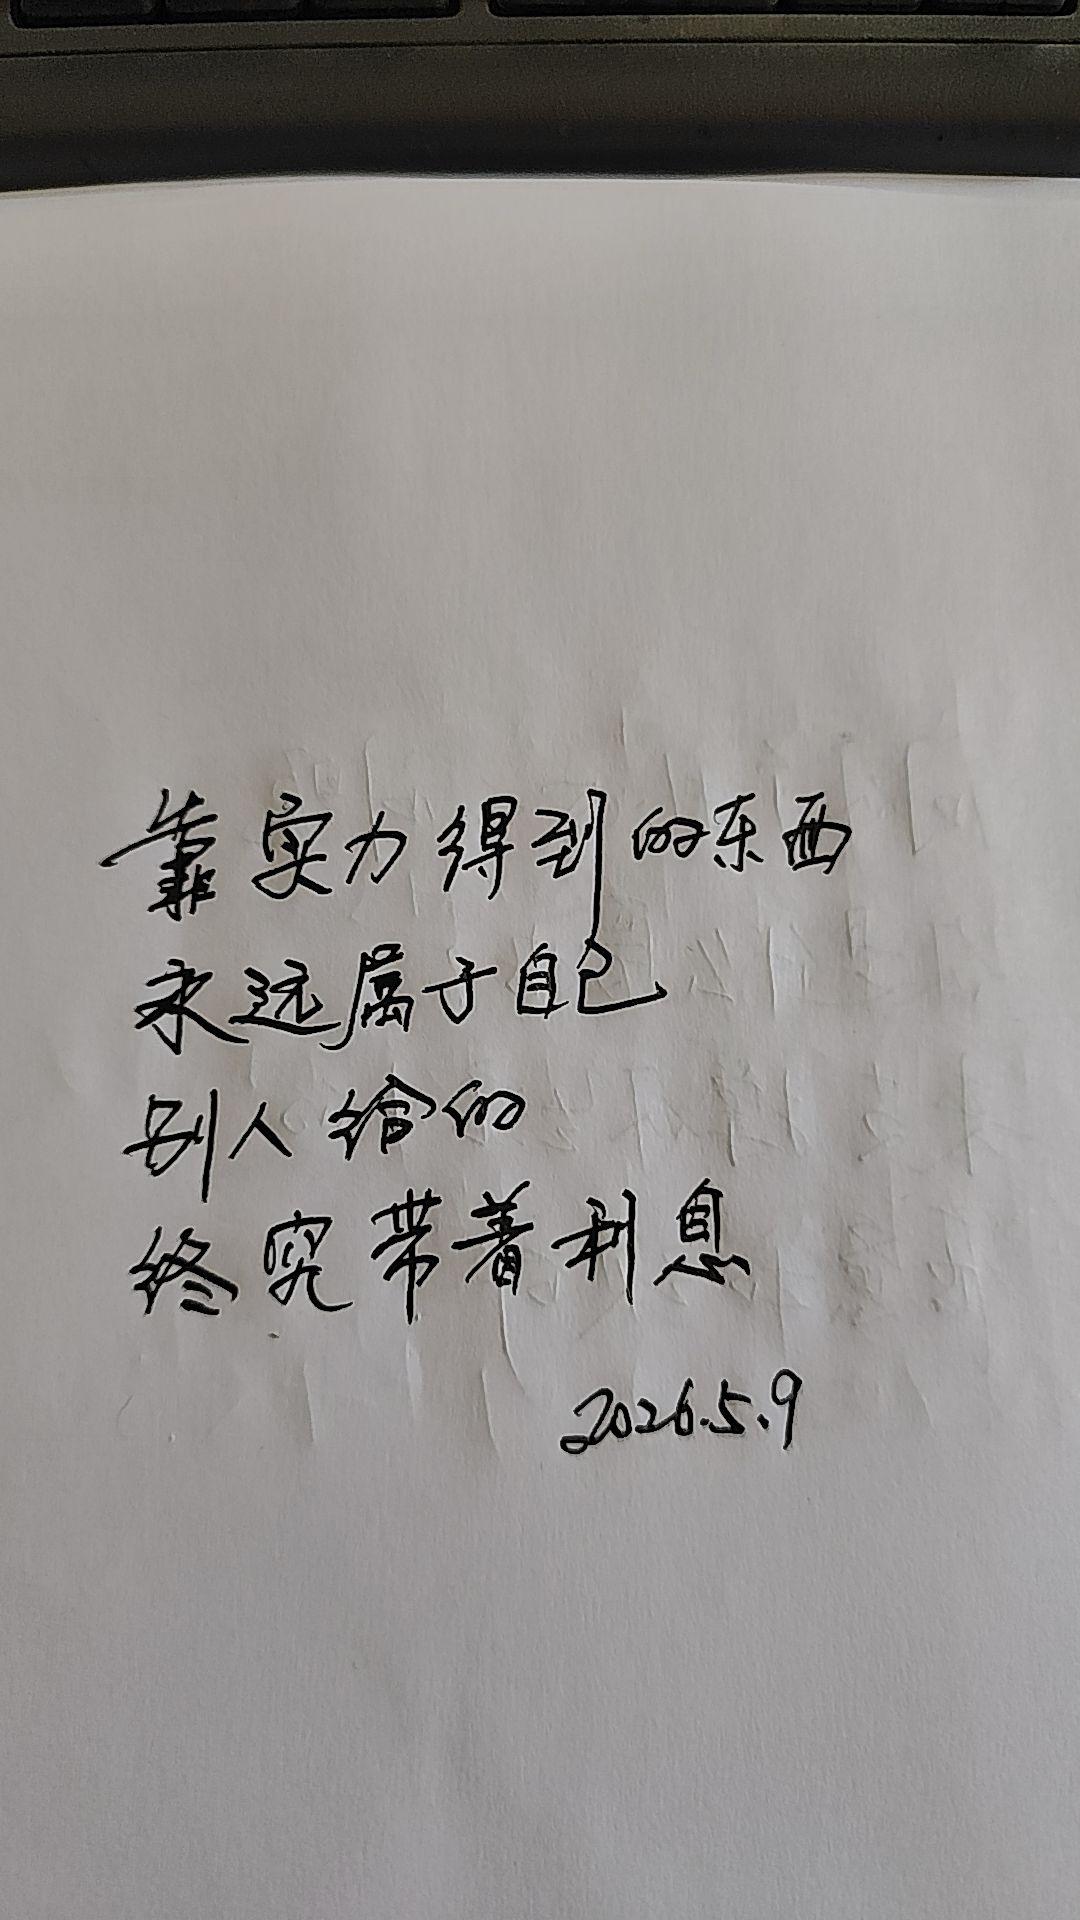 靠实力得到的东西
永远属于自己
别人给的
终究带着利息
2026.5.9